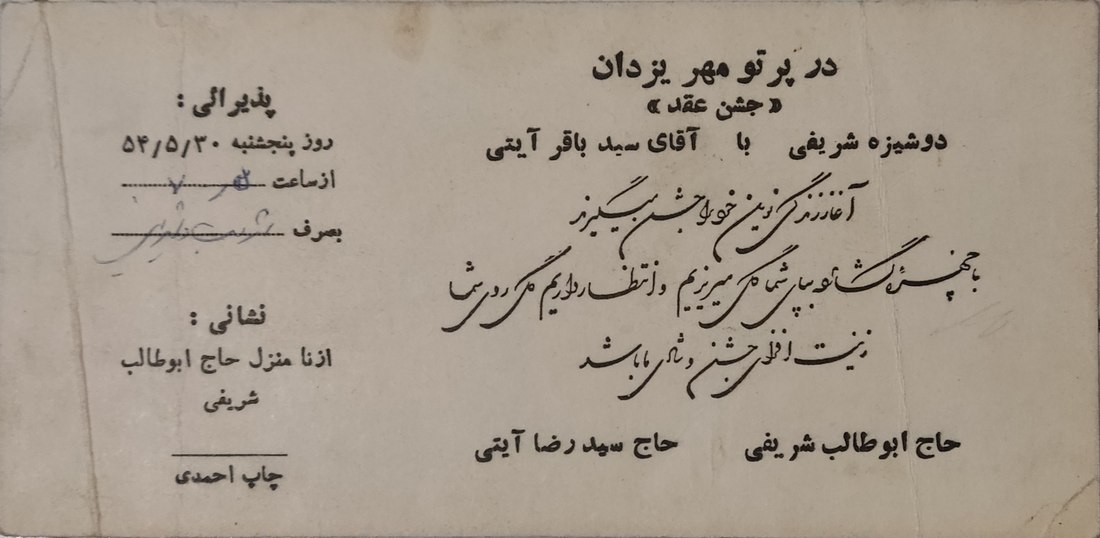 در پرتو مهر یزدان
«جشن عقد»
دوشیزه شریفی با آقای سید باقر آیتی
آغاز زندگی نوین خود را جشن میگیرند
با چهره گشاده بپای شما گل میریزیم و انتظار داریم گل روی شما
زینت افزای جشن و شادی ما باشد
حاج ابوطالب شریفی حاج سید رضا آیتی
پذیرائی :
روز پنجشنبه ۵۴/۵/۳۰
از ساعت ۷
بصرف شربت و شیرینی
نشانی :
ازنا منزل حاج ابوطالب
شریفی
چاپ احمدی